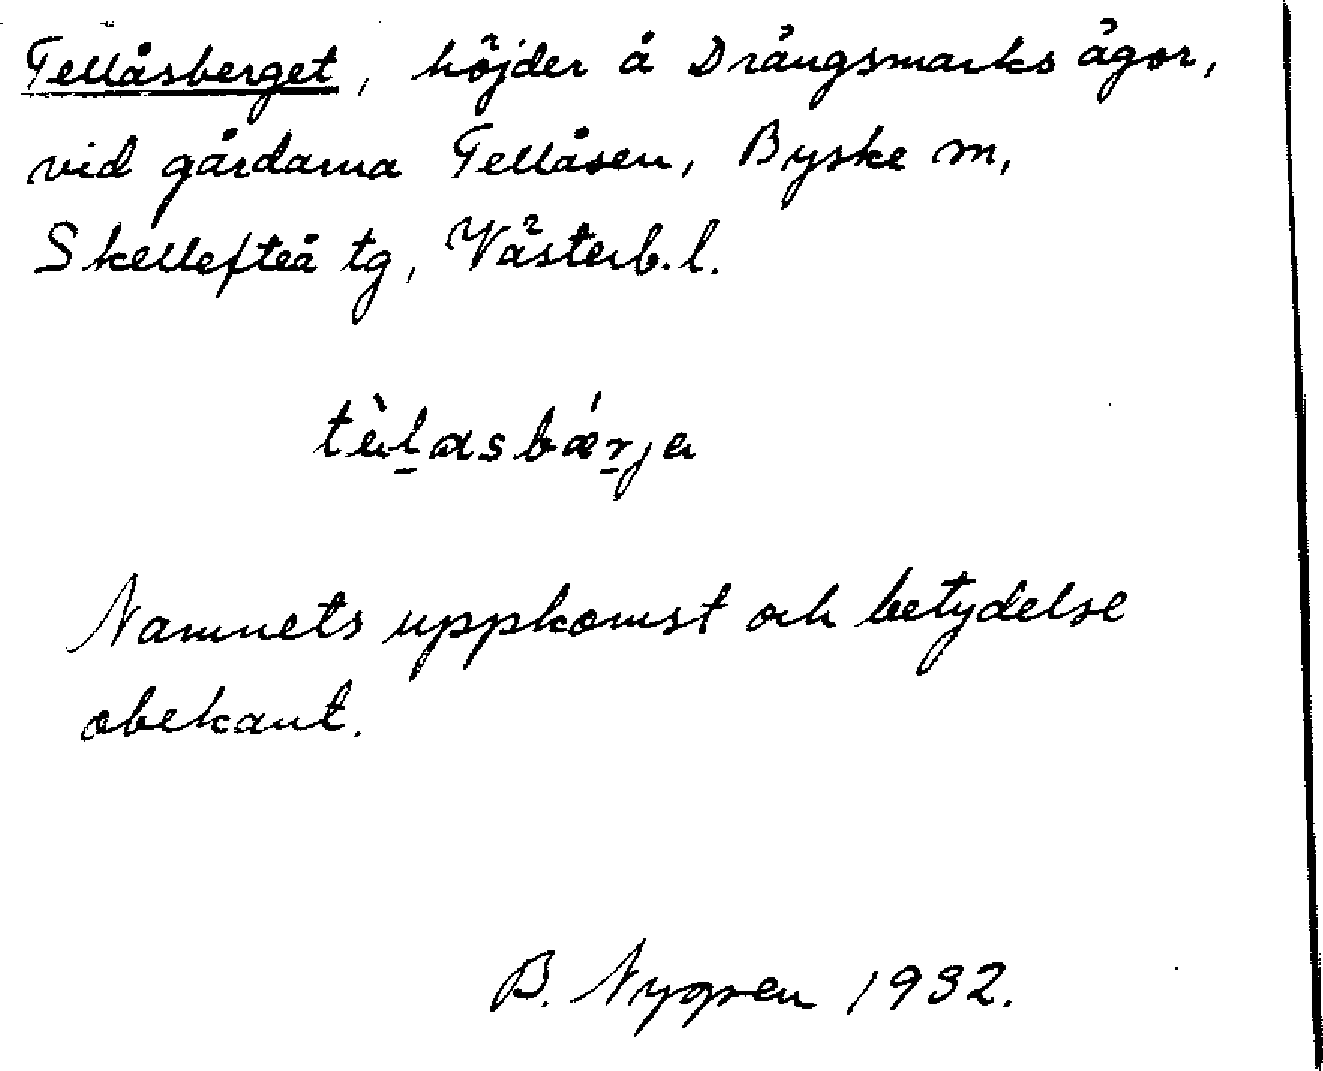 Tellåsberget, höjder å Drängsmarks ägor,
vid gårdarna Tellåsen, Byske sn,
Skellefteå tg, Västerb. l.
Namnets uppkomst och betydelse
obekant.
B. Nygren 1932.